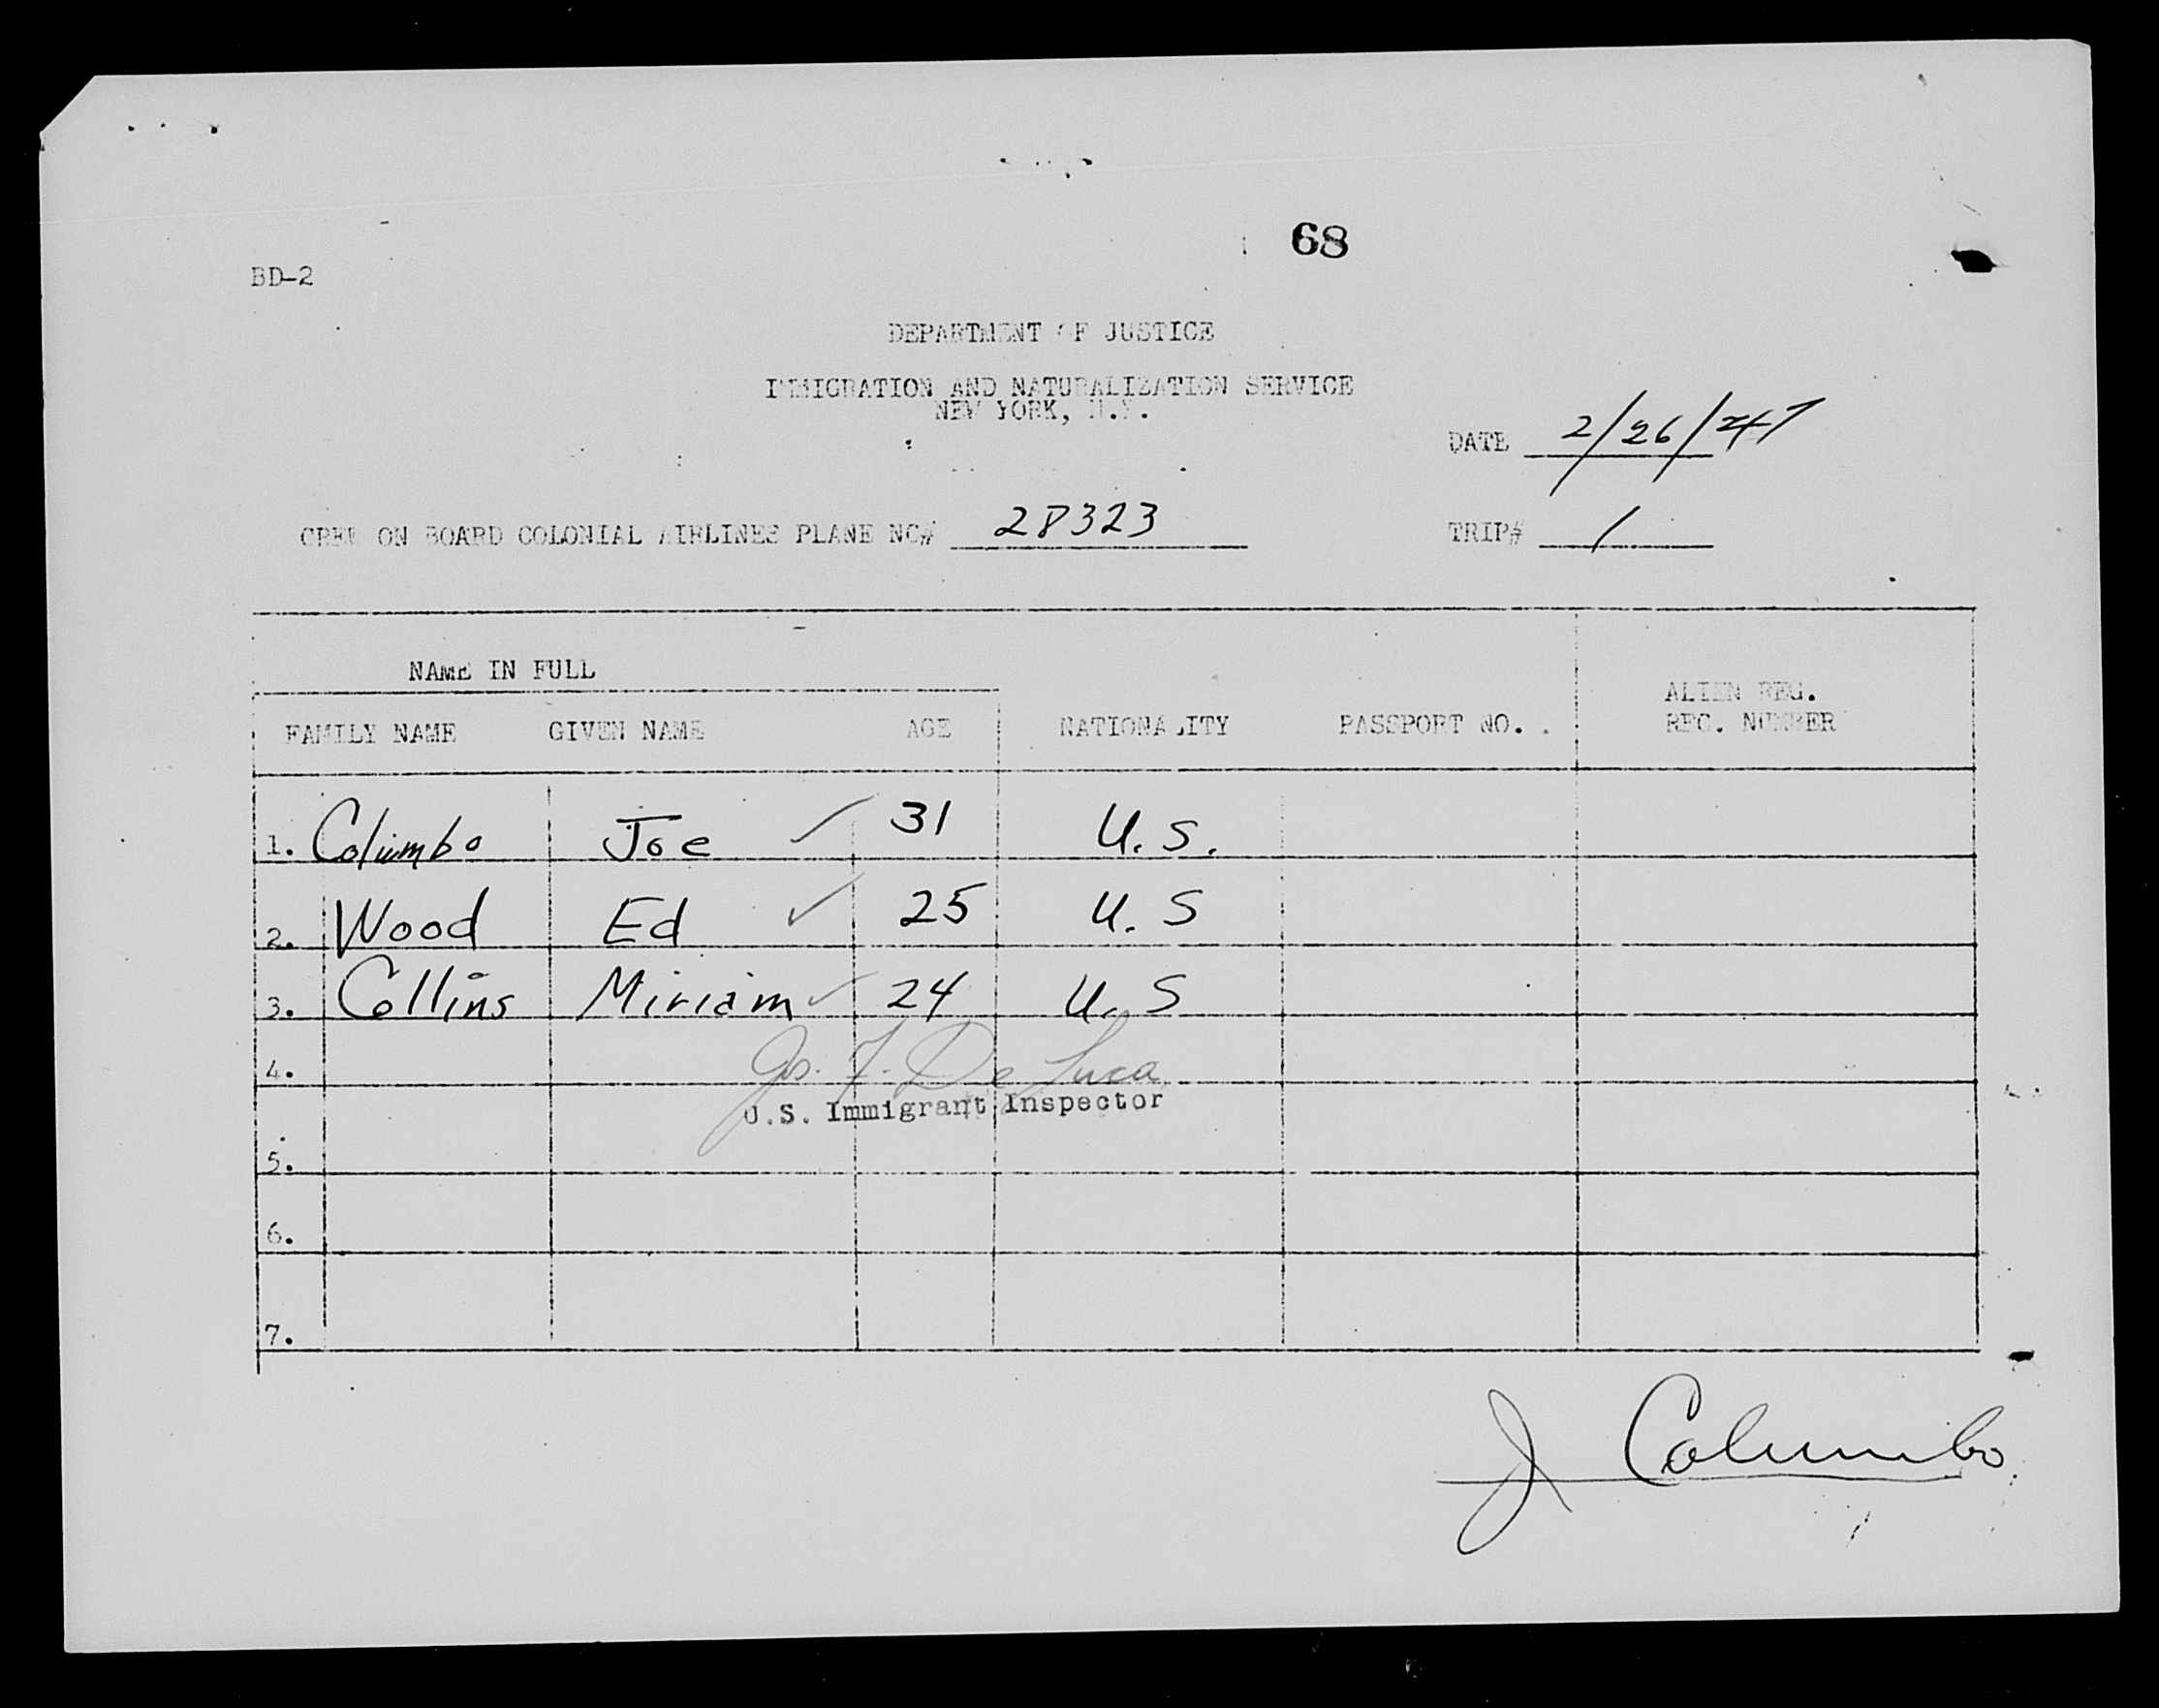 68
BD-2
DEPARTMENT OF JUSTICE
IMMIGRATION AND NATURALIZATION SERVICE
NEW YORK, N.Y.
DATE 2/26/47
CREW ON BOARD COLONIAL AIRLINES PLANE NC# 28323 TRIP# 1
NAME IN FULL
ALIEN REG.
FAMILY NAME GIVEN NAME AGE NATIONALITY PASSPORT NO. REC. NUMBER
1. Columbo Joe ✓ 31 U.S.
2. Wood Ed ✓ 25 U.S
3. Collins Miriam ✓ 24 U.S
4. Jos. F. De Luca
U.S. Immigrant Inspector
5.
6.
7.
J Columbo